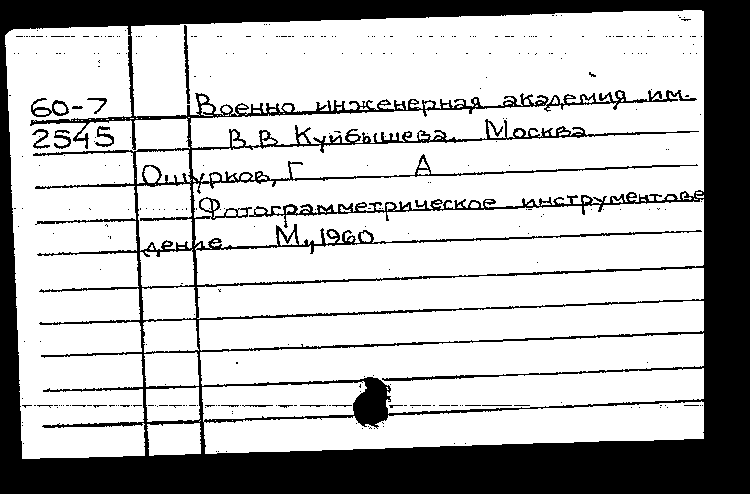 60-7 Военно инженерная академия им.
2545 В.В. Куйбышева. Москва
Ошурков, Г А
Фотограмметрическое инструментове
дение. М., 1960